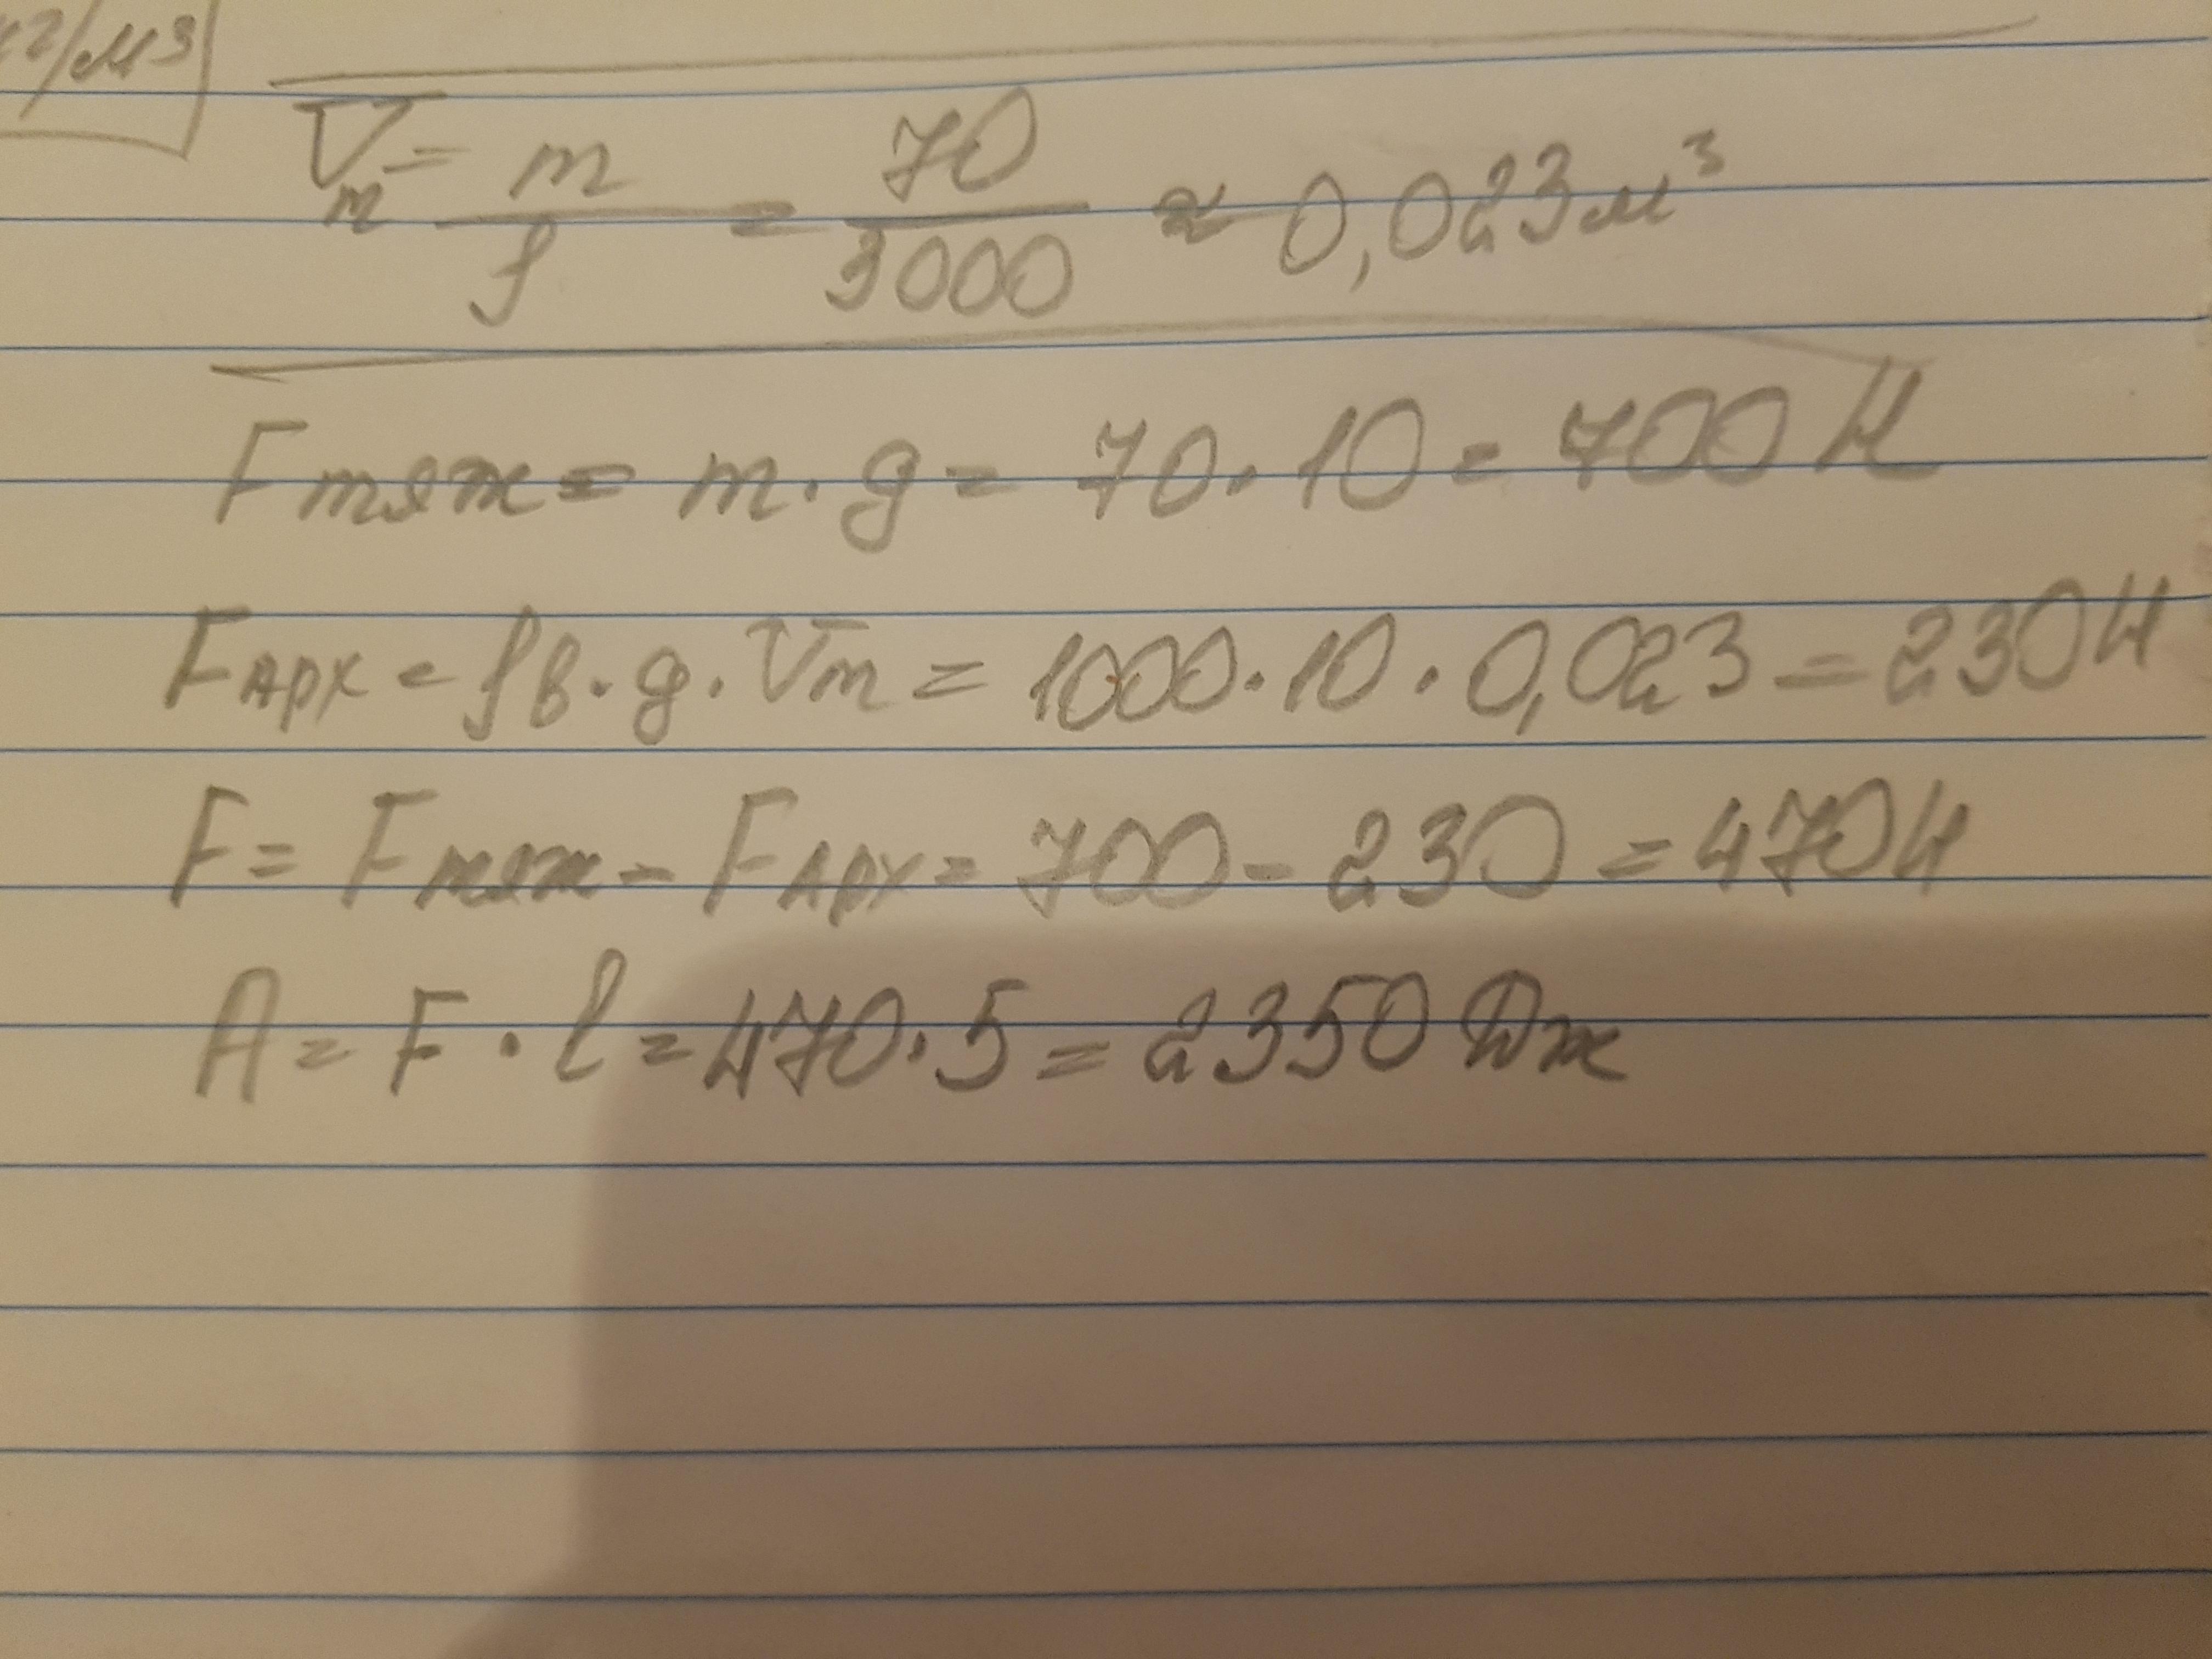 кг/м3
Vт = m/ρ = 70/3000 ≈ 0,023 м³
Fтяж = m · g = 70 · 10 = 700 Н
FАрх = ρв · g · Vт = 1000 · 10 · 0,023 = 230 Н
F = Fтяж - FАрх = 700 - 230 = 470 Н
A = F · l = 470 · 5 = 2350 Дж